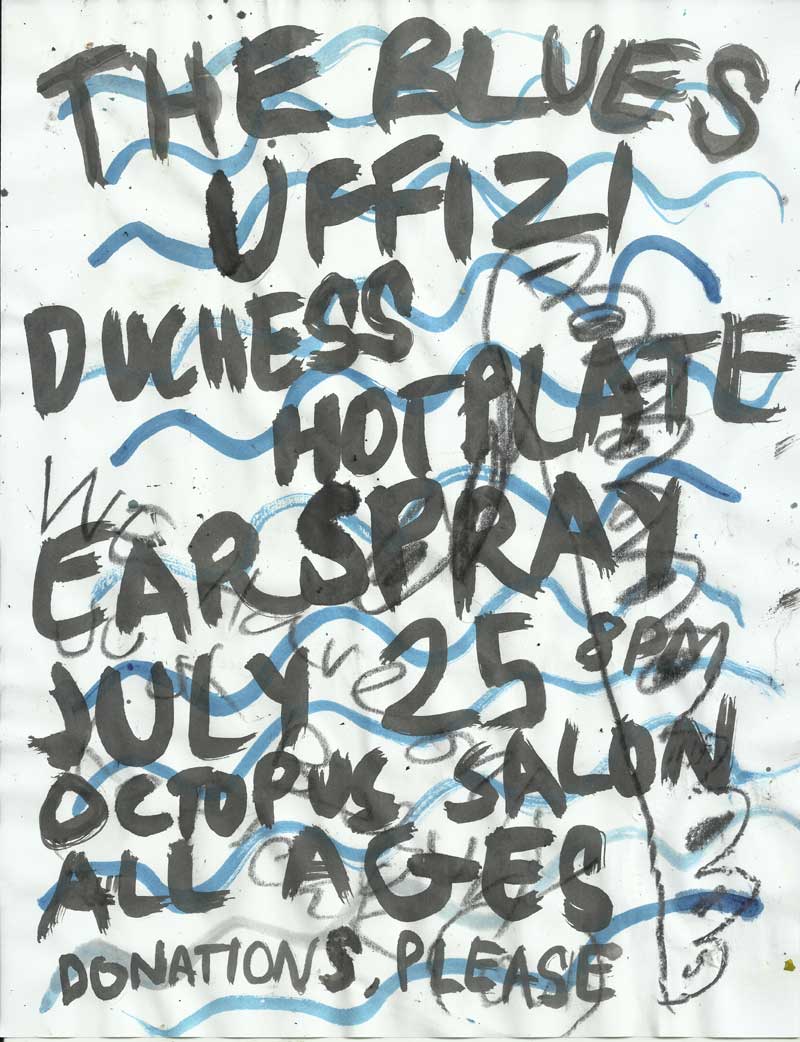 THE BLUES
UFFIZI
DUCHESS
HOTPLATE
EAR SPRAY
JULY 25 8PM
OCTOPUS SALON
ALL AGES
DONATIONS, PLEASE